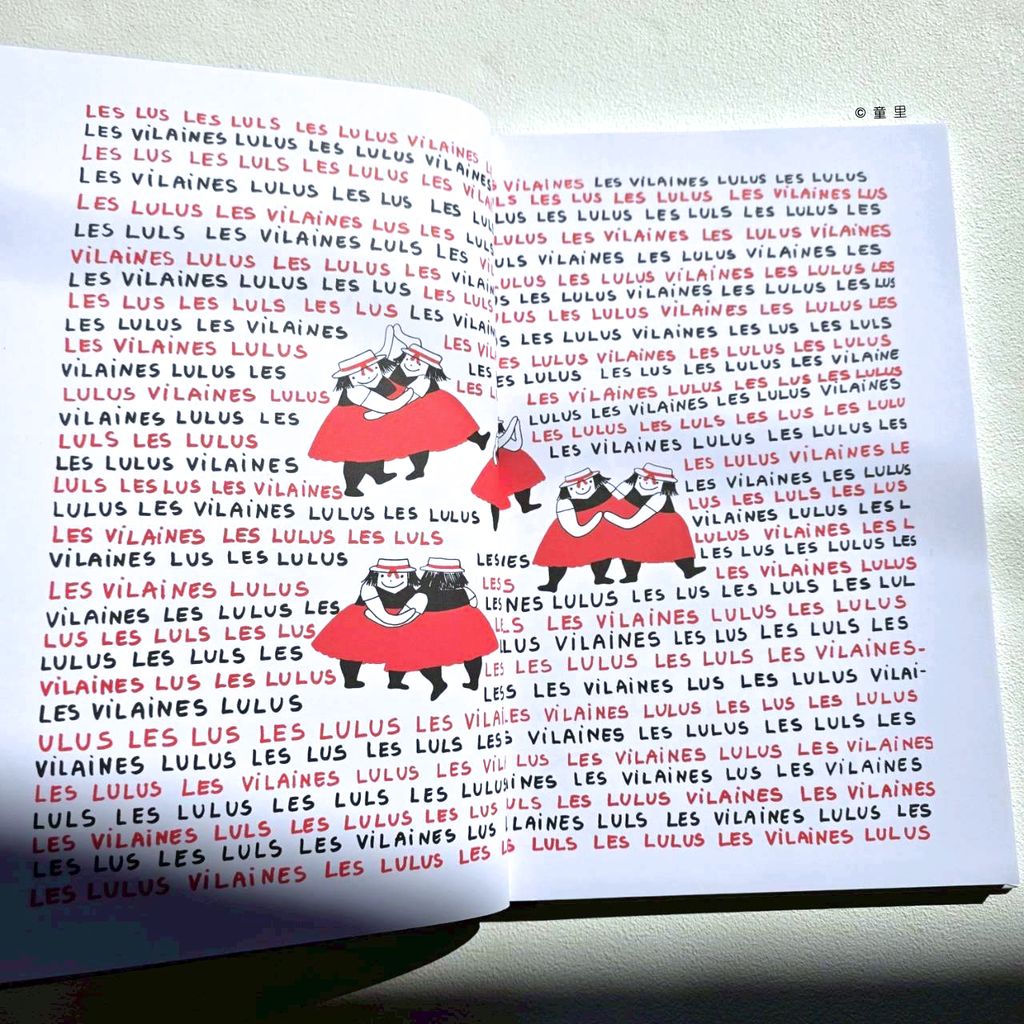 © 童里
LES LUS LES LULS LES LULUS VILAINES
LES VILAINES LULUS LES LULUS VILAINES
LES LUS LES LULS LES LULUS LES
LES VILAINES LULUS LES LUS LES
LES LULUS LES VILAINES LUS LES
LES LULS LES VILAINES LULS LES
VILAINES LULUS LES LULUS LES
LES VILAINES LULUS LES LUS LES LULS
LES LUS LES LULS LES LUS LES
LES LULUS LES VILAINES
LES VILAINES LULUS
VILAINES LULUS LES LES
LULUS VILAINES LULUS LES
VILAINES LULUS LES
LULS LES LULUS
LES LULUS VILAINES
LULS LES LUS LES VILAINES
LULUS LES VILAINES LULUS LES LULUS
LES VILAINES LES LULUS LES LULS
VILAINES LUS LES LULUS
LES VILAINES LULUS
VILAINES LES LULUS LES
LUS LES LULS LES LUS
LULUS LES LULS LES
VILAINES LUS LES LULUS
LES VILAINES LULUS
ULUS LES LUS LES LULUS LES
VILAINES LULUS LES LUS LES LULS LES
LES LULUS LES VILAINES LULUS LES
LULS LES LULUS LES LULS LES
LES VILAINES LULS LES LULUS LES LUS
LES LUS LES LULS LES VILAINES LUS
LES LULUS VILAINES LES LULUS LES
VILAINES LES VILAINES LULUS LES LULUS
LES LUS LES LULUS LES VILAINES LUS
LES LULUS LES LULS LES LULUS LES
LULUS LES VILAINES LES LULUS VILAINES
VILAINES LES LULUS VILAINES LES
LES LULUS LES VILAINES LES LULUS LES
LES LULUS VILAINES LES LULUS LES LUS
LES LULUS VILAINES LES LULUS LES
LES LULUS VILAINES LES LUS LES LULS
LULUS VILAINES LES LULUS LES LULUS
LULUS LES LULS LES LULUS LES VILAINE
LES VILAINES LULUS LES LUS LES LULUS
LULUS LES VILAINES LES LULUS VILAINES
LES LULUS LES LULS LES LUS LES LULU
LES VILAINES LULUS LES LULUS LES
LES LULUS VILAINES LE
LES VILAINES LES LULUS
LUS LES LULS LES LUS
VILAINES LULUS LES L
LULUS VILAINES LES L
LES LUS LES LULUS LES
LES VILAINES LULUS
LULUS LES LUS LES LULS LES LUL
LES VILAINES LULUS LES LULUS
VILAINES LES LUS LES LULS LES
LES LULUS LES LULS LES VILAINES-
LES VILAINES LUS LES LULUS VILAI-
VILAINES LULUS LES LUS LES LULUS
VILAINES LES LULUS LES LULS LES
LULUS LES VILAINES LULUS LES VILAINES
LES VILAINES LUS LES VILAINES
LES LULUS VILAINES LES VILAINES
LULS LES VILAINES LULUS LES
LULS LES LULUS LES VILAINES LULUS